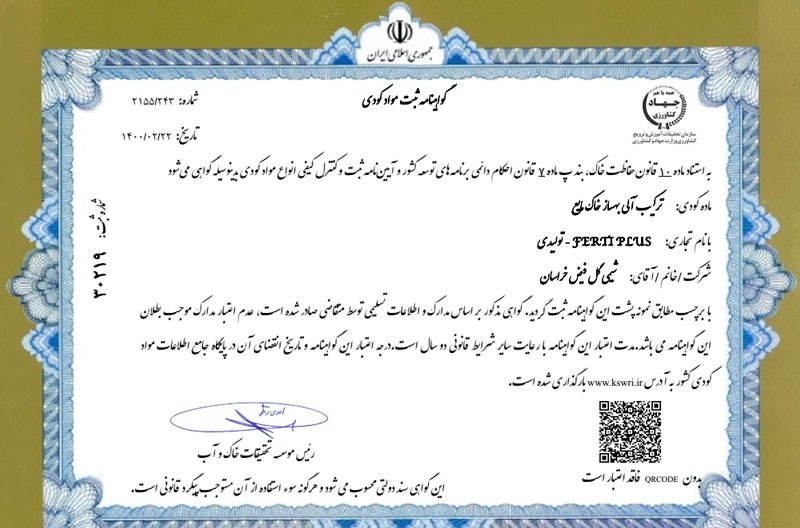 جمهوری اسلامی ایران
همه با هم
جهاد
کشاورزی
سازمان تحقیقات، آموزش و ترویج
کشاورزی وزارت جهاد کشاورزی
گواهینامه ثبت مواد کودی
شماره: ۲۱۵۵/۲۴۳
تاریخ: ۱۴۰۰/۰۲/۲۲
شماره ثبت: ۳۰۲۱۹
به استناد ماده ۱۰ قانون حفاظت خاک، بند پ ماده ۷ قانون احکام دائمی برنامه های توسعه کشور و آیین نامه ثبت و کنترل کیفی انواع مواد کودی بدینوسیله گواهی می شود
ماده کودی: ترکیب آلی بهساز خاک مایع
با نام تجاری: FERTI PLUS - تولیدی
شرکت / خانم / آقای: شیمی گل فیض خراسان
با برچسب مطابق نمونه پشت این گواهینامه ثبت گردید. گواهی مذکور بر اساس مدارک و اطلاعات تسلیمی توسط متقاضی صادر شده است، عدم اعتبار مدارک موجب بطلان
این گواهینامه می باشد. مدت اعتبار این گواهینامه با رعایت سایر شرایط قانونی دو سال است. درجه اعتبار این گواهینامه و تاریخ انقضای آن در پایگاه جامع اطلاعات مواد
کودی کشور به آدرس www.kswri.ir بارگذاری شده است.
رئیس موسسه تحقیقات خاک و آب
بدون QRCODE فاقد اعتبار است
این گواهی سند دولتی محسوب می شود و هرگونه سوء استفاده از آن مستوجب پیگرد قانونی است.